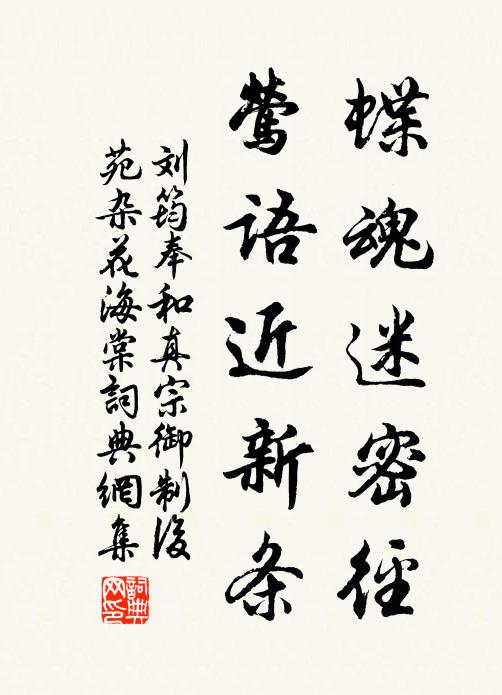 蝶魂迷密径
莺语近新条
刘筠奉和真宗御制后
苑杂花海棠詞典網集
詞典
网印